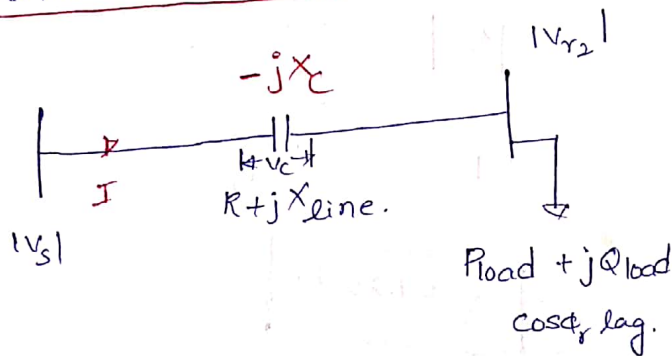 |Vr2|
-jXc
I
Vc
R+jXline.
|Vs|
Pload + jQload
cosϕr lag.